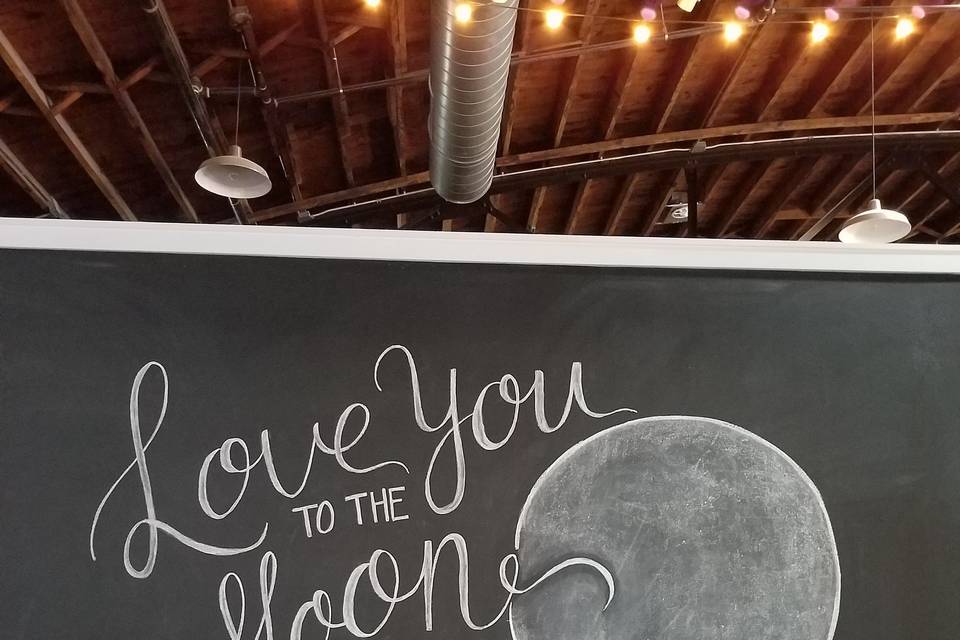 Love You
TO THE
Moon